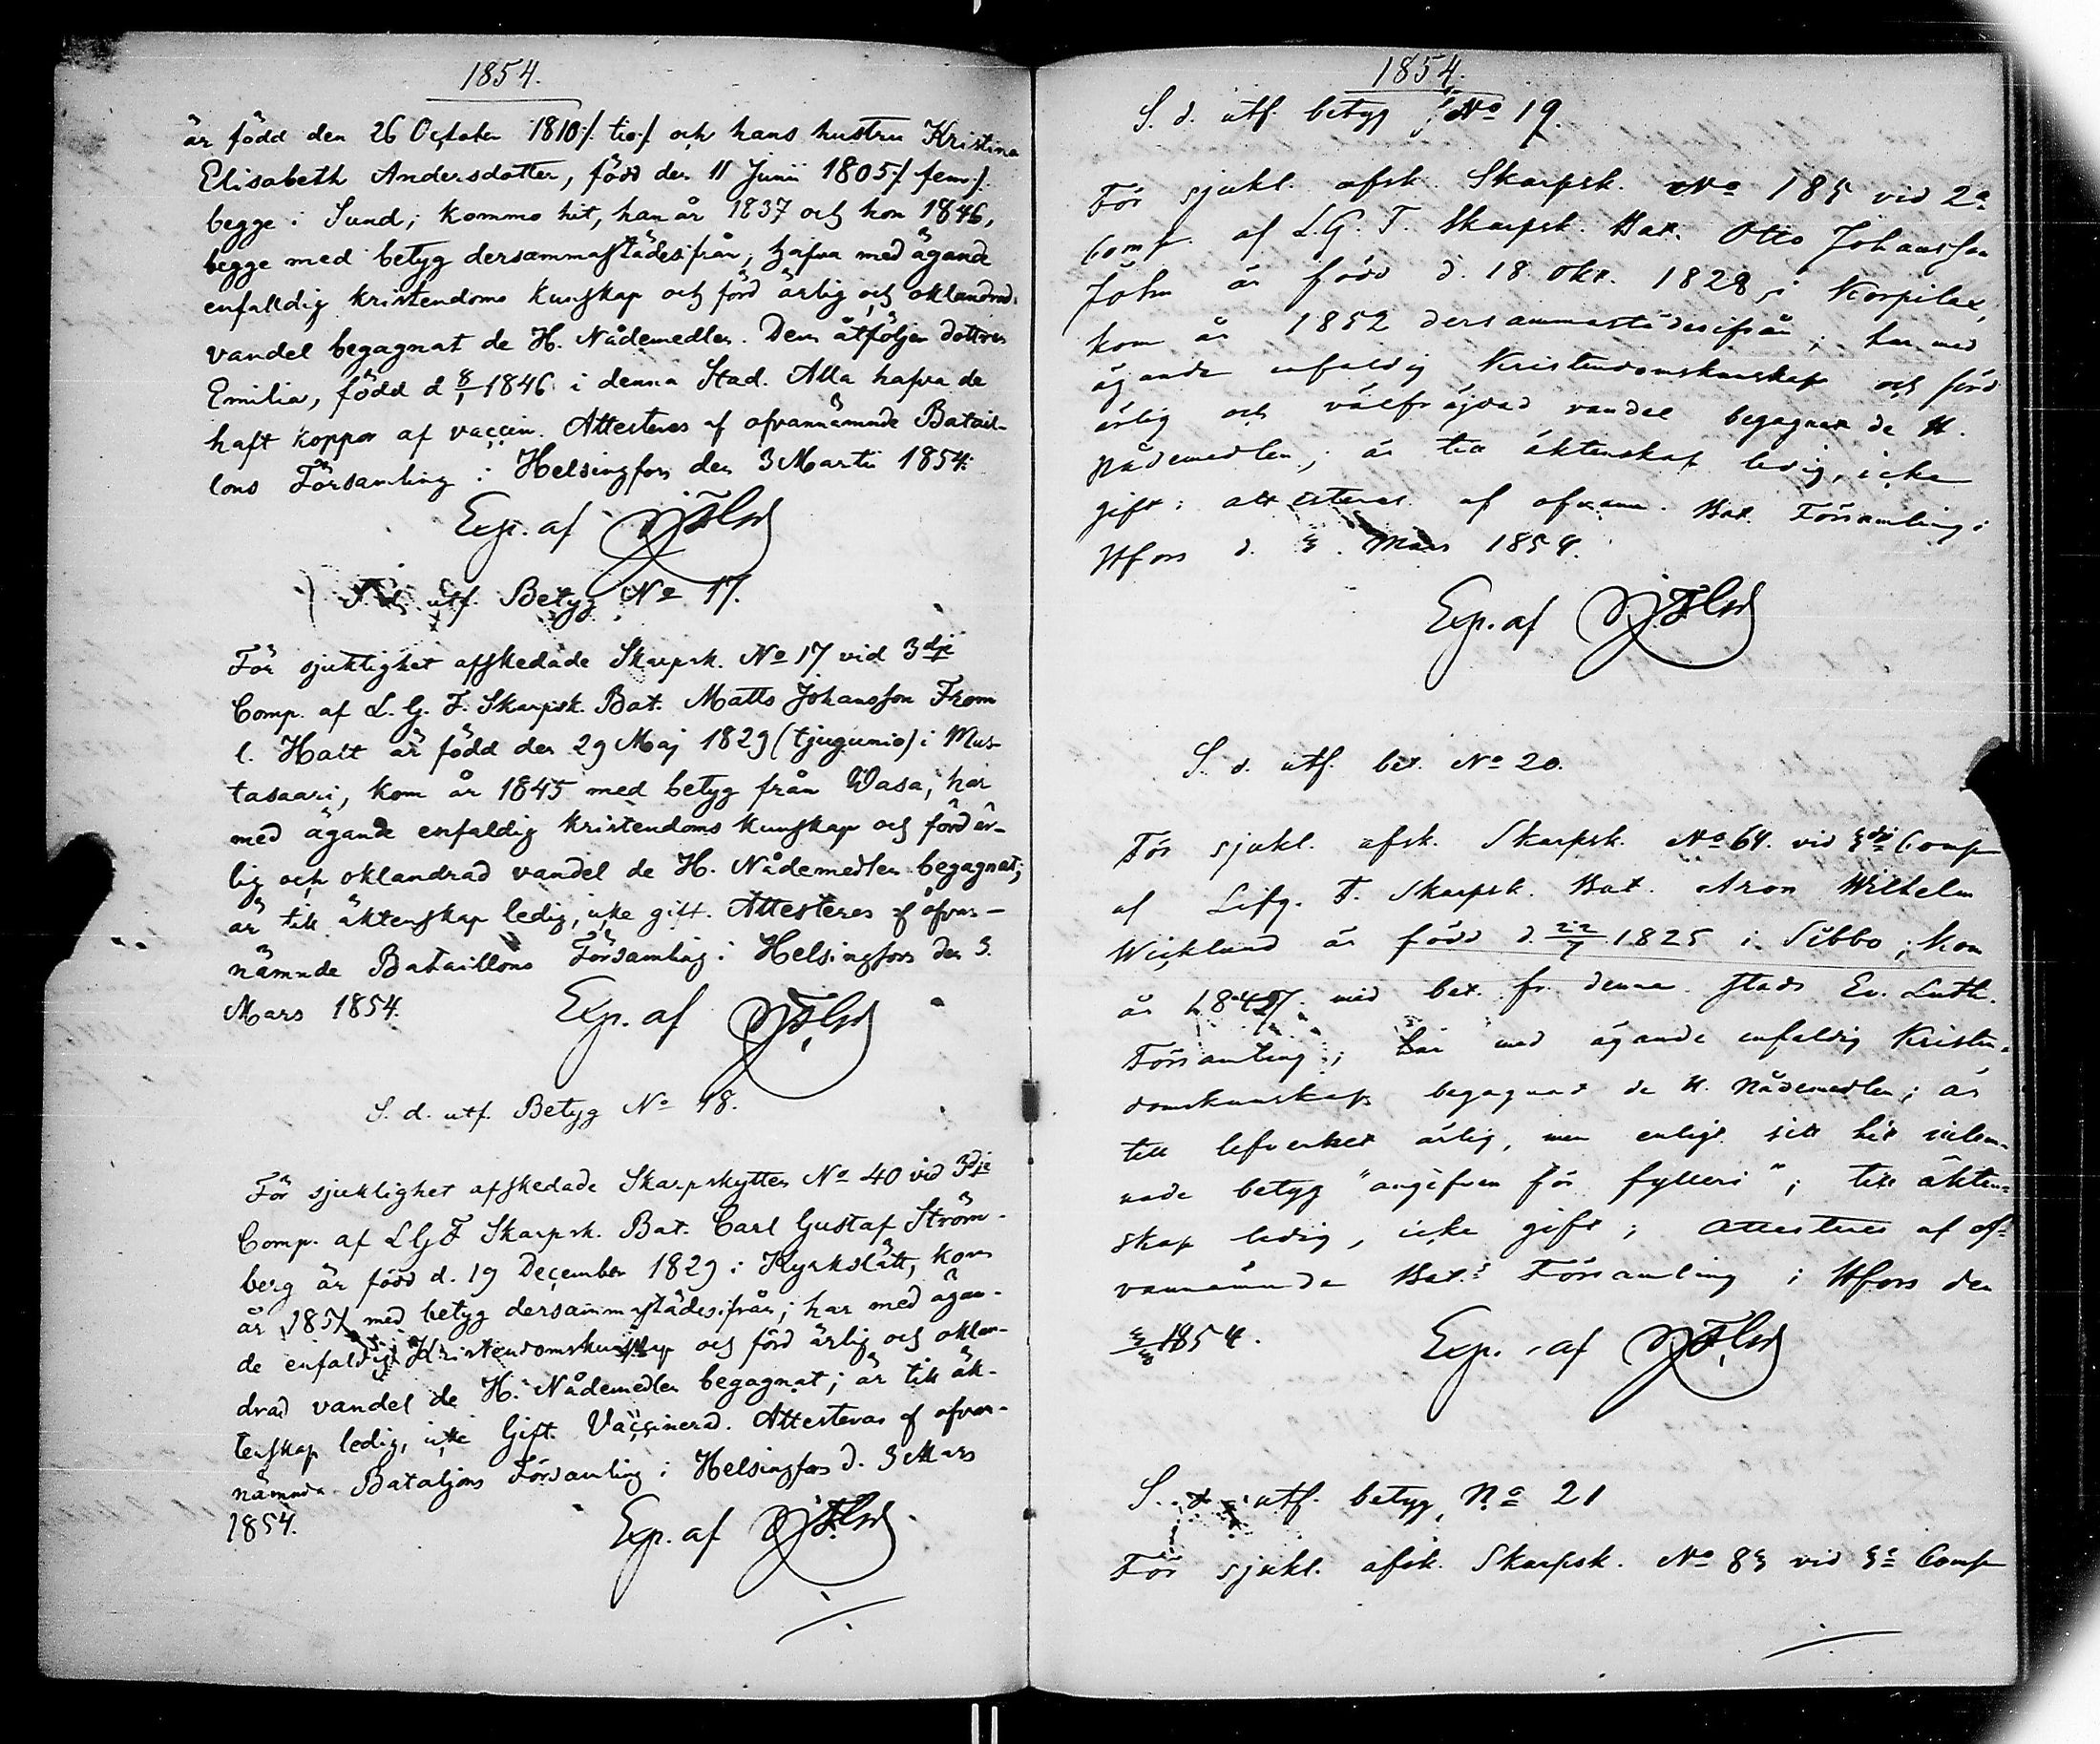 1854.
är född den 26 October 1810 /. tio ./ och hans hustru Kristina
Elisabeth Andersdotter, född den 11 Junii 1805 /. fem ./
begge i Sund; kommo hit, han år 1837 och hon 1846,
begge med betyg dersammastädesifrån; hafva med ägande
enfaldig kristendoms kunskap och förd ärlig och oklandrad
vandel begagnat de H. Nådemedlen. Dem åtföljer dottren
Emilia, född d 8/1 1846 i denna Stad. Alla hafva de
haft koppor af vaccin. Attesteras af ofvannämnde Batail-
lons Församling i Helsingfors den 3 Martii 1854.
Exp. af
S. d. utf. Betyg No 17.
För sjuklighet afskedade Skarpsk. No 17 vid 3dje
Comp. af L. G. F. Skarpsk. Bat. Matts Johansson From
l. Halt är född den 29 Maj 1829 (tjugunio) i Mus-
tasaari, kom år 1845 med betyg från Wasa; har
med ägande enfaldig kristendoms kunskap och förd är-
lig och oklandrad vandel de H. Nådemedlen begagnat;
är till äktenskap ledig, icke gift. Attesteres af ofvan-
nämnde Bataillons Församling i Helsingfors den 3.
Mars 1854.
Exp. af
S. d. utf. Betyg No 18.
För sjuklighet afskedade Skarpskytten No 40 vid 3dje
Comp. af LGF Skarpsk. Bat. Carl Gustaf Ström-
berg är född d. 19 December 1829 i Kyrkslätt, kom
år 1851 med betyg dersammastädesifrån; har med ägan-
de enfaldig Kristendomskunskap och förd ärlig och oklan-
drad vandel de H. Nådemedlen begagnat; är till äk-
tenskap ledig, icke Gift. Vaccinerad. Attesteras af ofvan-
nämnda Bataljons Församling i Helsingfors d. 3 Mars
1854.
Exp. af
1854.
S. d. utf. betyg No 19.
För sjukl. afsk. Skarpsk. No 185 vid 2a
Comp. af L.G. F. Skarpsk. Bat. Otto Johansson
John är född d. 18 Okt. 1828 i Korpilax,
kom år 1852 dersammastädesifrån; har med
ägande enfaldig Kristendomskunskap och förd
ärlig och välfräjdad vandel begagnat de H.
Nådemedlen; är till äktenskap ledig, icke
gift; attesteras af ofvann. Bat. Församling i
Hfors d. 3. Mars 1854.
Exp. af
S. d. utf. bet. No 20.
För sjukl. afsk. Skarpsk. No 64. vid 3dje Comp
af Lifg. F. Skarpsk. Bat. Aron Wilhelm
Wicklund är född d. 22/7 1825 i Sibbo; kom
år 1847 med bet. fr. denna stads Ev. Luth.
Församling; har med ägande enfaldig Kristen-
domskunskap begagnat de H. Nådemedlen; är
till lefvernet ärlig, men enligt sitt hit inlem-
nade betyg "angifven för fylleri"; till äkten-
skap ledig, icke gift; Attesteres af of-
vannämnda Bat:s Församling i Hfors den
3/3 1854.
Exp. af
S. d. utf. betyg No 21
För sjukl. afsk. Skarpsk. No 83 vid 3e Comp